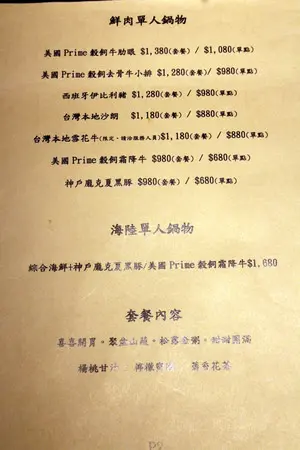 鮮肉單人鍋物
美國Prime穀飼牛肋眼 $1,380(套餐) / $1,080(單點)
美國Prime穀飼去骨牛小排 $1,280(套餐)/ $980(單點)
西班牙伊比利豬 $1,280(套餐) / $980(單點)
台灣本地沙朗 $1,180(套餐) / $880(單點)
台灣本地雪花牛(限定,請洽服務人員)$1,180(套餐) / $880(單點)
美國Prime穀飼霜降牛 $980(套餐) / $680(單點)
神戶龐克夏黑豚 $980(套餐) / $680(單點)
海陸單人鍋物
綜合海鮮+神戶龐克夏黑豚/美國Prime穀飼霜降牛$1,680
套餐內容
喜喜開胃。聚盆山蔬。松露金粥。甜甜圓滿
楊桃甘汁
P2